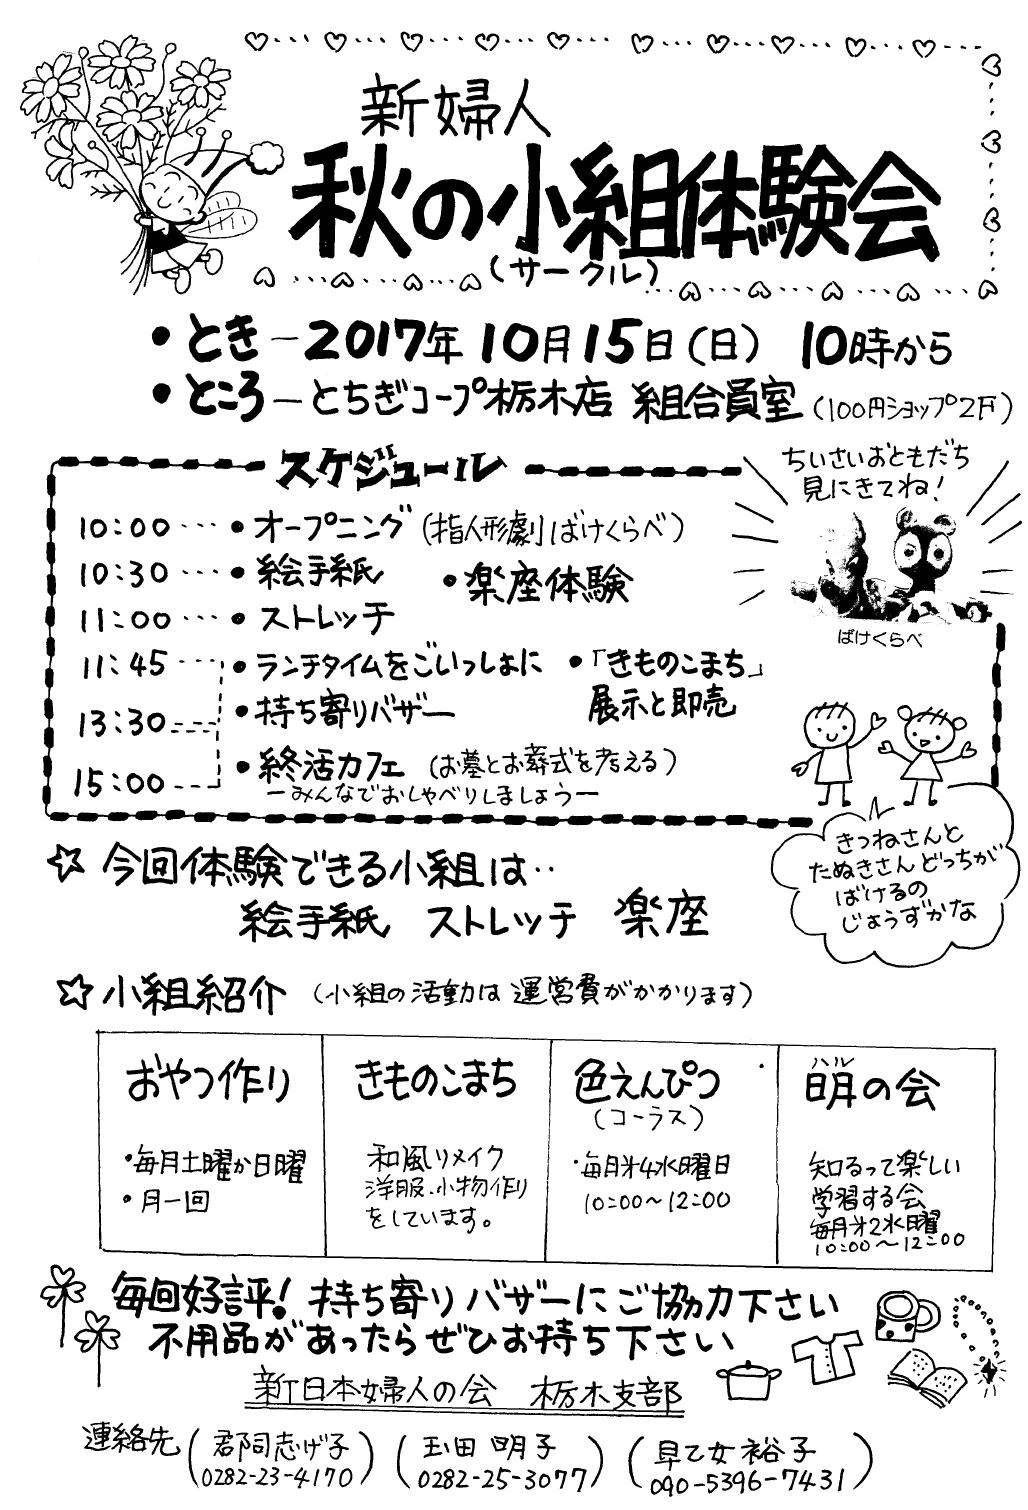 新婦人
秋の小組体験会
(サークル)
• とき － 2017年 10月 15日(日) 10時から
• ところ － とちぎコープ栃木店 組合員室 (100円ショップ2F)
スケジュール
ちいさいおともだち
見にきてね！
ばけくらべ
10:00 … • オープニング (指人形劇 ばけくらべ)
10:30 … • 絵手紙 • 楽座体験
11:00 … • ストレッチ
11:45 … • ランチタイムをごいっしょに • 「きものこまち」
展示と即売
13:30 • 持ち寄りバザー
15:00 • 終活カフェ (お墓とお葬式を考える)
－みんなでおしゃべりしましょう－
きつねさんと
たぬきさん どっちが
ばけるの
じょうずかな
☆ 今回体験できる小組は‥
絵手紙 ストレッチ 楽座
☆ 小組紹介 (小組の活動は 運営費がかかります)
おやつ作り
• 毎月土曜か日曜
• 月一回
きものこまち
和風リメイク
洋服、小物作り
をしています。
色えんぴつ
(コーラス)
• 毎月才4水曜日
10:00～12:00
ハル
明の会
知るって楽しい
学習する会
毎月才2水曜
10:00～12:00
毎回好評！ 持ち寄り バザーにご協力下さい
不用品があったらぜひお持ち下さい
新日本婦人の会 栃木支部
連絡先 (郡司志げ子 0282-23-4170) (玉田 明子 0282-25-3077) (早乙女 裕子 090-5396-7431)